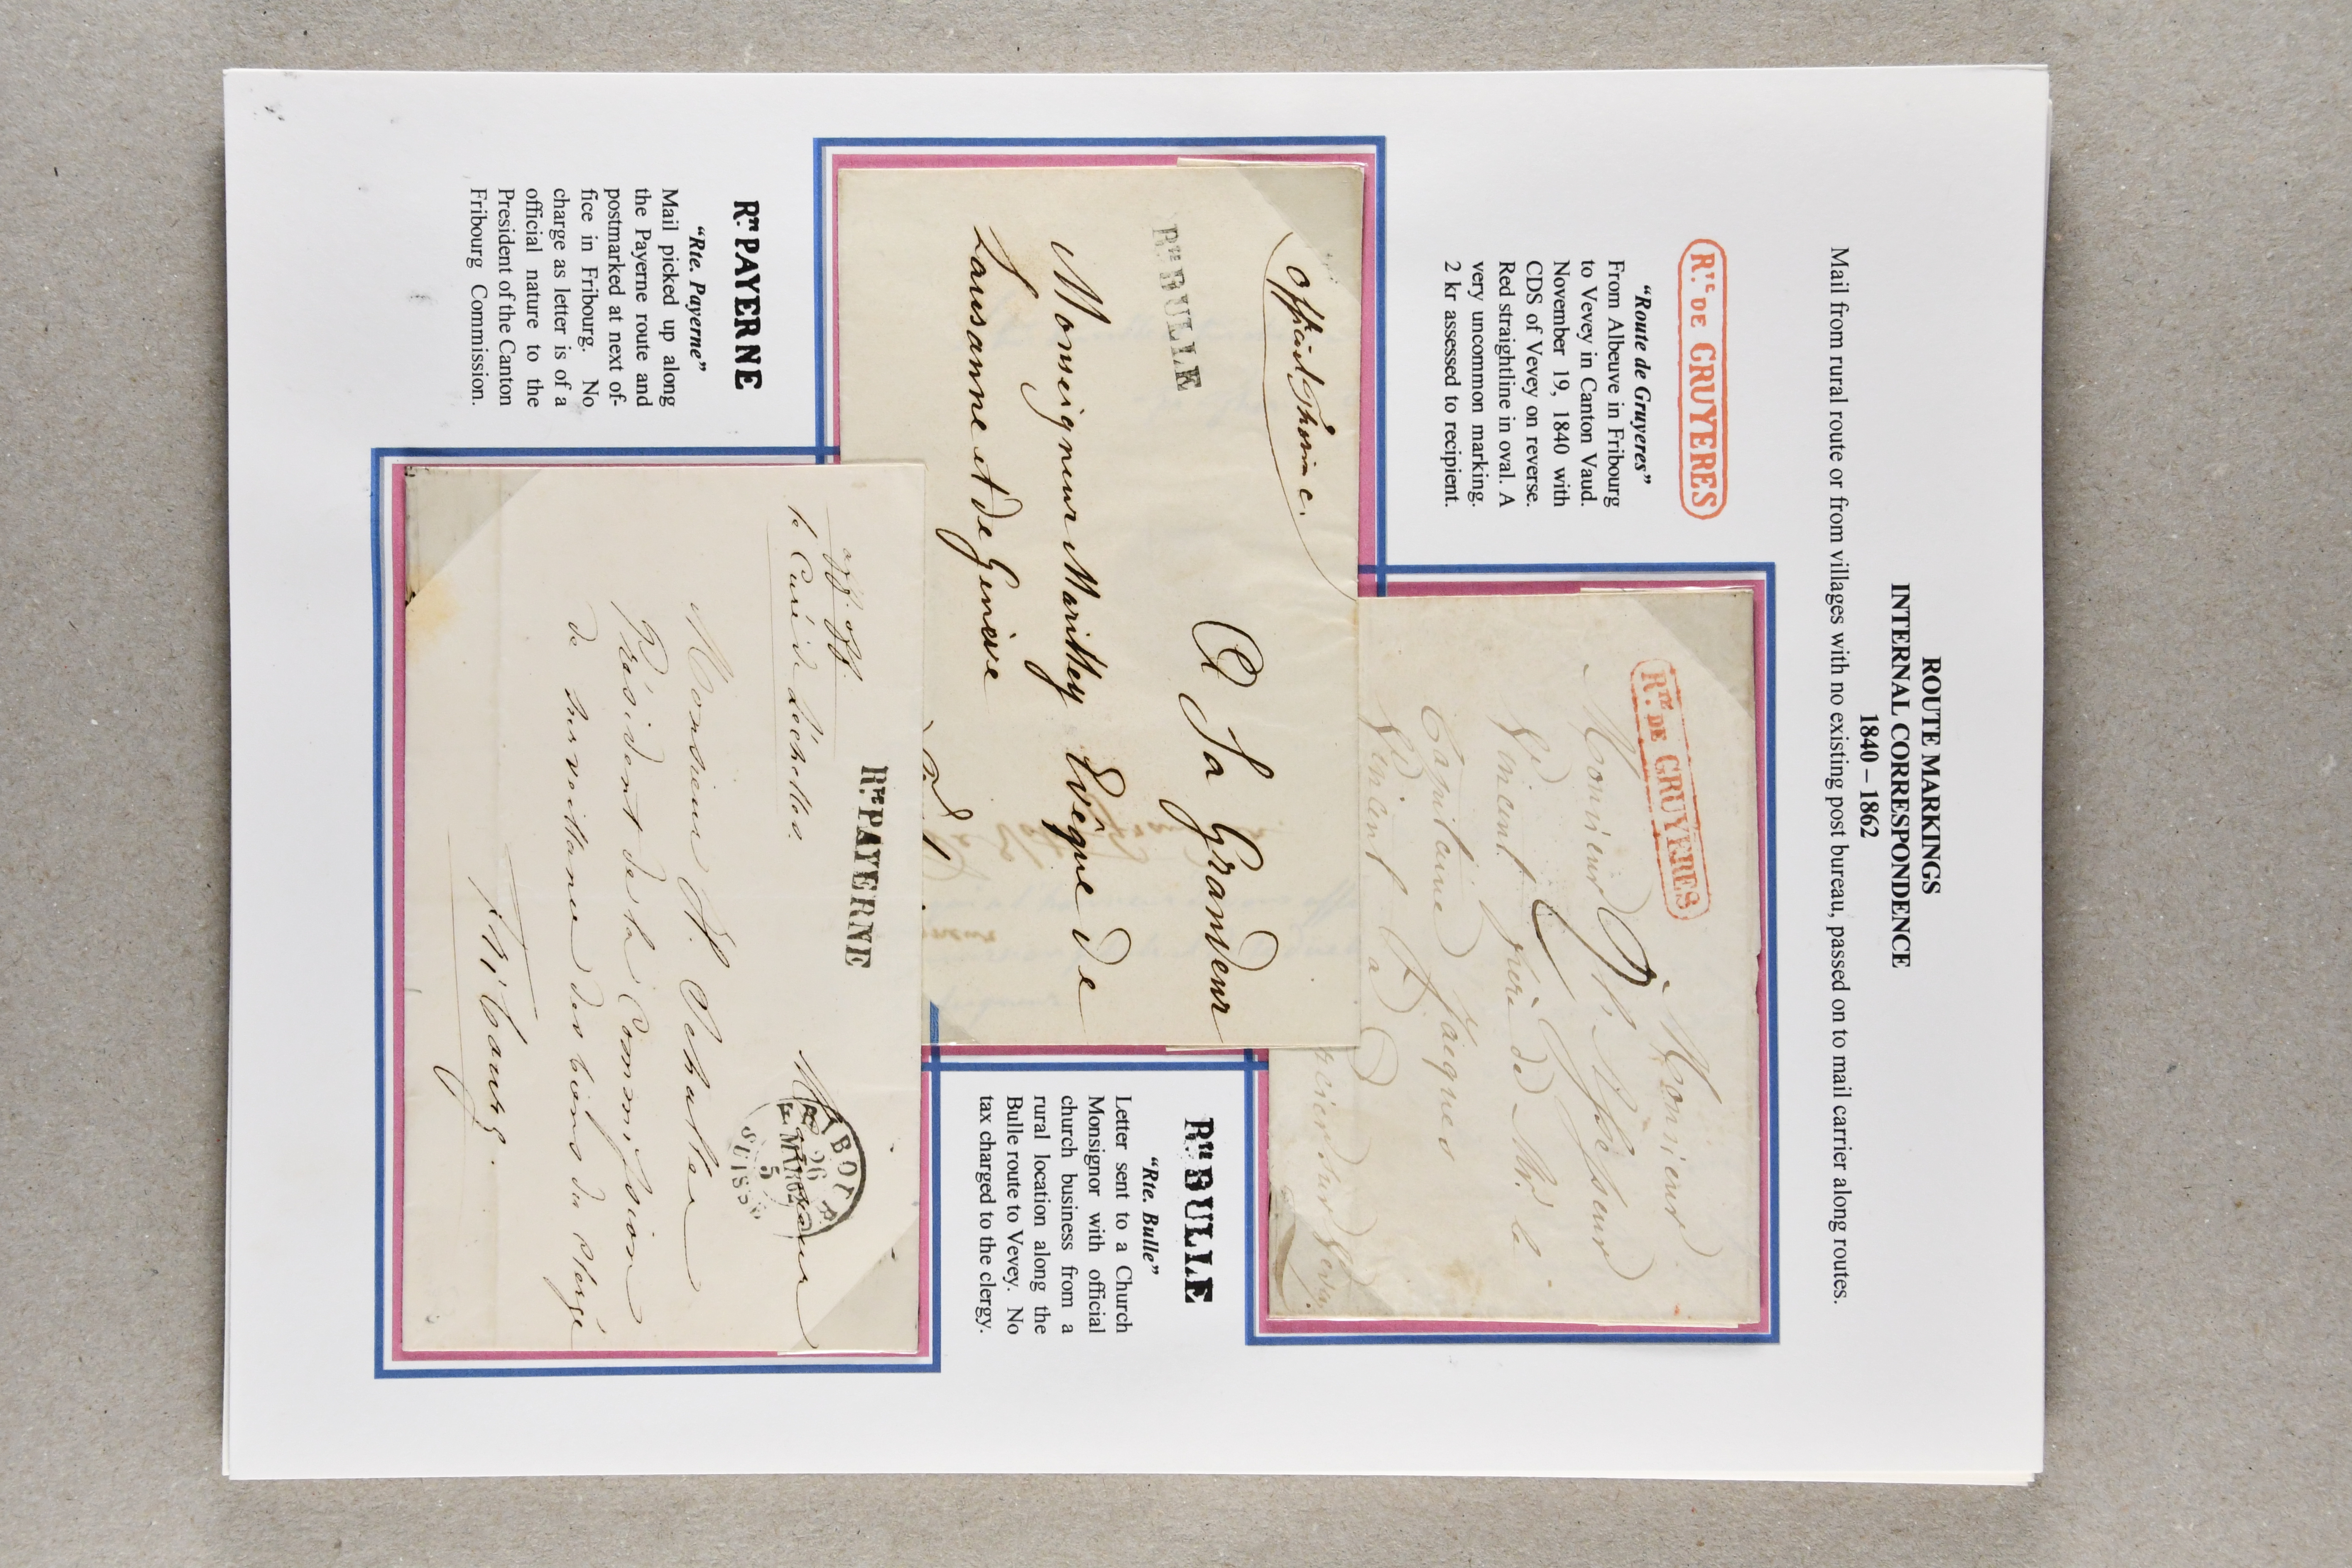 ROUTE MARKINGS
INTERNAL CORRESPONDENCE
1840 – 1862
Mail from rural route or from villages with no existing post bureau, passed on to mail carrier along routes.
Rte DE GRUYERES
“Route de Gruyeres”
From Albeuve in Fribourg
to Vevey in Canton Vaud.
November 19, 1840 with
CDS of Vevey on reverse.
Red straightline in oval. A
very uncommon marking.
2 kr assessed to recipient.
Rte DE GRUYERES
Monsieur
Monsieur
Vincent frère de Mr. le
Capitaine Jacques
Vincent à
Rte BULLE
“Rte. Bulle”
Letter sent to a Church
Monsignor with official
church business from a
rural location along the
Bulle route to Vevey. No
tax charged to the clergy.
Rte BULLE
A Sa Grandeur
Monseigneur Marilley Evêque de
Lausanne et de Genève
Rte PAYERNE
“Rte. Payerne”
Mail picked up along
the Payerne route and
postmarked at next of-
fice in Fribourg. No
charge as letter is of a
official nature to the
President of the Canton
Fribourg Commission.
Rte PAYERNE
off. off.
le Curé de
Monsieur
26 MAR 62
5
SUISSE
Monsieur
Président de la Commission
de surveillance des biens du Clergé
Fribourg.